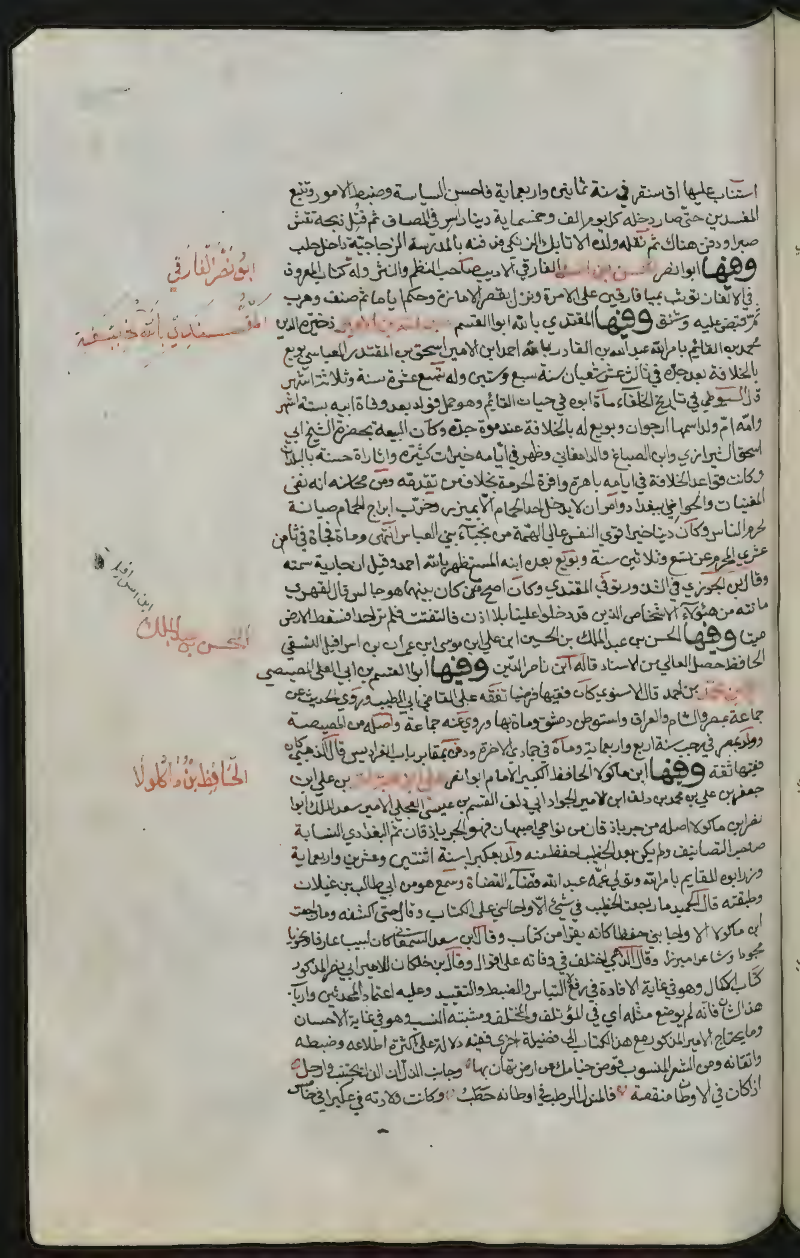 استناب عليها اق سنقر في سنة ثمانين واربعماية فاحسن السياسة وضبط الامور وتتبع
المفسدين حتى صار دخله كل يوم الف وخمسماية دينار اسر في المصاف ثم قتل ذبحه تتش
صبرا ودفن هناك ثم نقله ولده الاتابك زنكي فدفنه بالمدرسة الزجاجية داخل حلب
وفيها ابو نصر الحسن بن اسد الفارقي الاديب صاحب النظم والنثر وله كتاب المعروف
في الالغاز توثب بميافارقين على الامرة ونزل بقصر الامارة وحكم اياما ثم ضعف وهرب
ثم قبض عليه وشنق وفيها المقتدي بالله ابو القسم عبد الله بن الامير ذخيرة الدين
محمد بن القائم بامر الله عبد الله بن القادر بالله احمد ابن الامير اسحق بن المقتدر العباسي بويع
بالخلافة بعد جده في ثالث عشر شعبان سنة سبع وستين وله تسع عشرة سنة وثلاثة اشهر
قال السيوطي في تاريخ الخلفاء مات ابوه في حيات القائم وهو حمل فولد بعد وفاة ابيه بستة اشهر
وامه ام ولد اسمها ارجوان وبويع له بالخلافة عند موت جده وكان البيعة بحضرة الشيخ ابي
اسحق الشيرازي وابن الصباغ والدامغاني وظهر في ايامه خيرات كثيرة واثارة حسنة بالبلدان
وكانت قواعد الخلافة في ايامه باهرة وافرة الحرمة بخلاف من تقدمه ومن محاسنه انه نفى
المغنيات والخواطي ببغداد وامر ان لا يدخل احد الحمام الا بميزر وخرب ابراج الحمام صيانة
لحرم الناس وكان دينا خيرا قوي النفس عالي الهمة من نجباء بني العباس انتهى ومات فجأة في ثامن
عشري المحرم عن تسع وثلاثين سنة وبويع بعده ابنه المستظهر بالله احمد وقيل ان جارية سمته
وقال ابن الجوزي في الشذور توفي المقتدي وكان اصح ما كان بينما هو جالس قال لقهرمـ
مانته من هؤلاء الاشخاص الذين قد دخلوا علينا بلا اذن فالتفتت فلم تر احدا فسقط الى الارض
ميتا وفيها الحسن بن عبد الملك بن الحسين ابن علي ابن موسى ابن عمران بن اسرافيل النسفي
الحافظ حصل العالي من الاسناد قاله ابن ناصر الدين وفيها ابو القسم بن ابي العلى المصيصي
علي بن محمد بن احمد قال الاسنوي كان فقيها فرضيا تفقه على القاضي ابي الطيب وروى الحديث عن
جماعة بمصر والشام والعراق واستوطن دمشق ومات بها وروى عنه جماعة واصله من المصيصة
وولد بمصر في رجب سنة اربع واربعماية ومات في جمادي الاخرة ودفن بمقابر باب الفراديس قال الذهبي كان
فقيها ثقة وفيها ابن ماكولا الحافظ الكبير الامام ابو نصر علي بن هبة الله بن علي ابن
جعفر بن علي بن محمد بن دلف ابن الامير الجواد ابي دلف القسم بن عيسى العجلي الامير سعد الملك ابو
نصر ابن ماكولا اصله من جرباذقان من نواحي اصبهان فهو الجرباذقاني ثم البغدادي النسابة
صاحب التصانيف ولم يكن بعد الخطيب احفظ منه ولد بعكبرا سنة اثنتين وعشرين واربعماية
وزر ابوه للقايم بامر الله وتولى عمه عبد الله قضاء القضاة وسمع هو من ابي طالب بن غيلان
وطبقته قال الحميدي ما راجعت الخطيب في شيء الا واحالني على الكتاب وقال حتى اكشفه وما راجعت
ابن ماكولا الا واجابني حفظا كانه يقرا من كتاب وقال ابن سعد السمعاني كان لبيبا عارفا ونحويا
مجودا وشاعرا مبرزا وقال الذهبي اختلف في وفاته على اقوال وقال ابن خلكان للامير ابي نصر المذكور
كتاب الاكمال وهو في غاية الافادة في رفع التباس والضبط والتقييد وعليه اعتماد المحدثين وارباب
هذا الشان فانه لم يوضع مثله اي في المؤتلف والمختلف ومشتبه النسب وهو في غاية الاحسان
وما يحتاج الامير المذكور مع هذا الكتاب الى فضيلة اخرى ففيه دلالة على كثرة اطلاعه وضبطه
واتقانه ومن الشعر المنسوب قوض خيامك عن ارض تهان بها وجانب الذل ان الذل مجتنب وارحل
اذا كان في الاوطان منقصة فالمندل الرطب في اوطانه حطب وكانت ولادته في عكبرا في خامس
ابو نصر الفارقي
المقتدي بالله خليفة
ابن اسرافيل
الحسن بن عبد الملك
الحافظ بن ماكولا